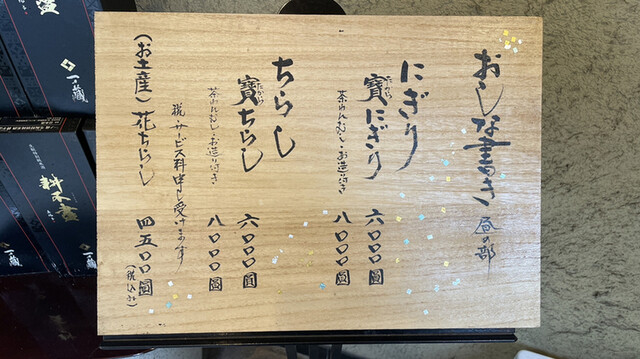 おしな書き 昼の部
にぎり
寶にぎり 六〇〇〇圓
たから
茶わんむし・お造り付き 八〇〇〇圓
ちらし
寶ちらし 六〇〇〇圓
たから
茶わんむし・お造り付き 八〇〇〇圓
税・サービス料申し受けます
(お土産)花ちらし 四五〇〇圓
(税込み)
一ノ蔵
一ノ蔵